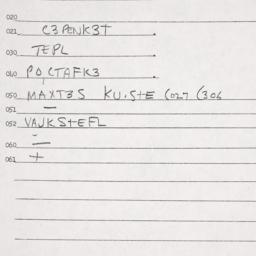 020
021 C3PENK3T .
030 TEPL .
040 POCTAFK3 .
050 MAXT3S KU.STE (027 (306
051 —
052 VAUKSTEFL
-
060 —
061 +